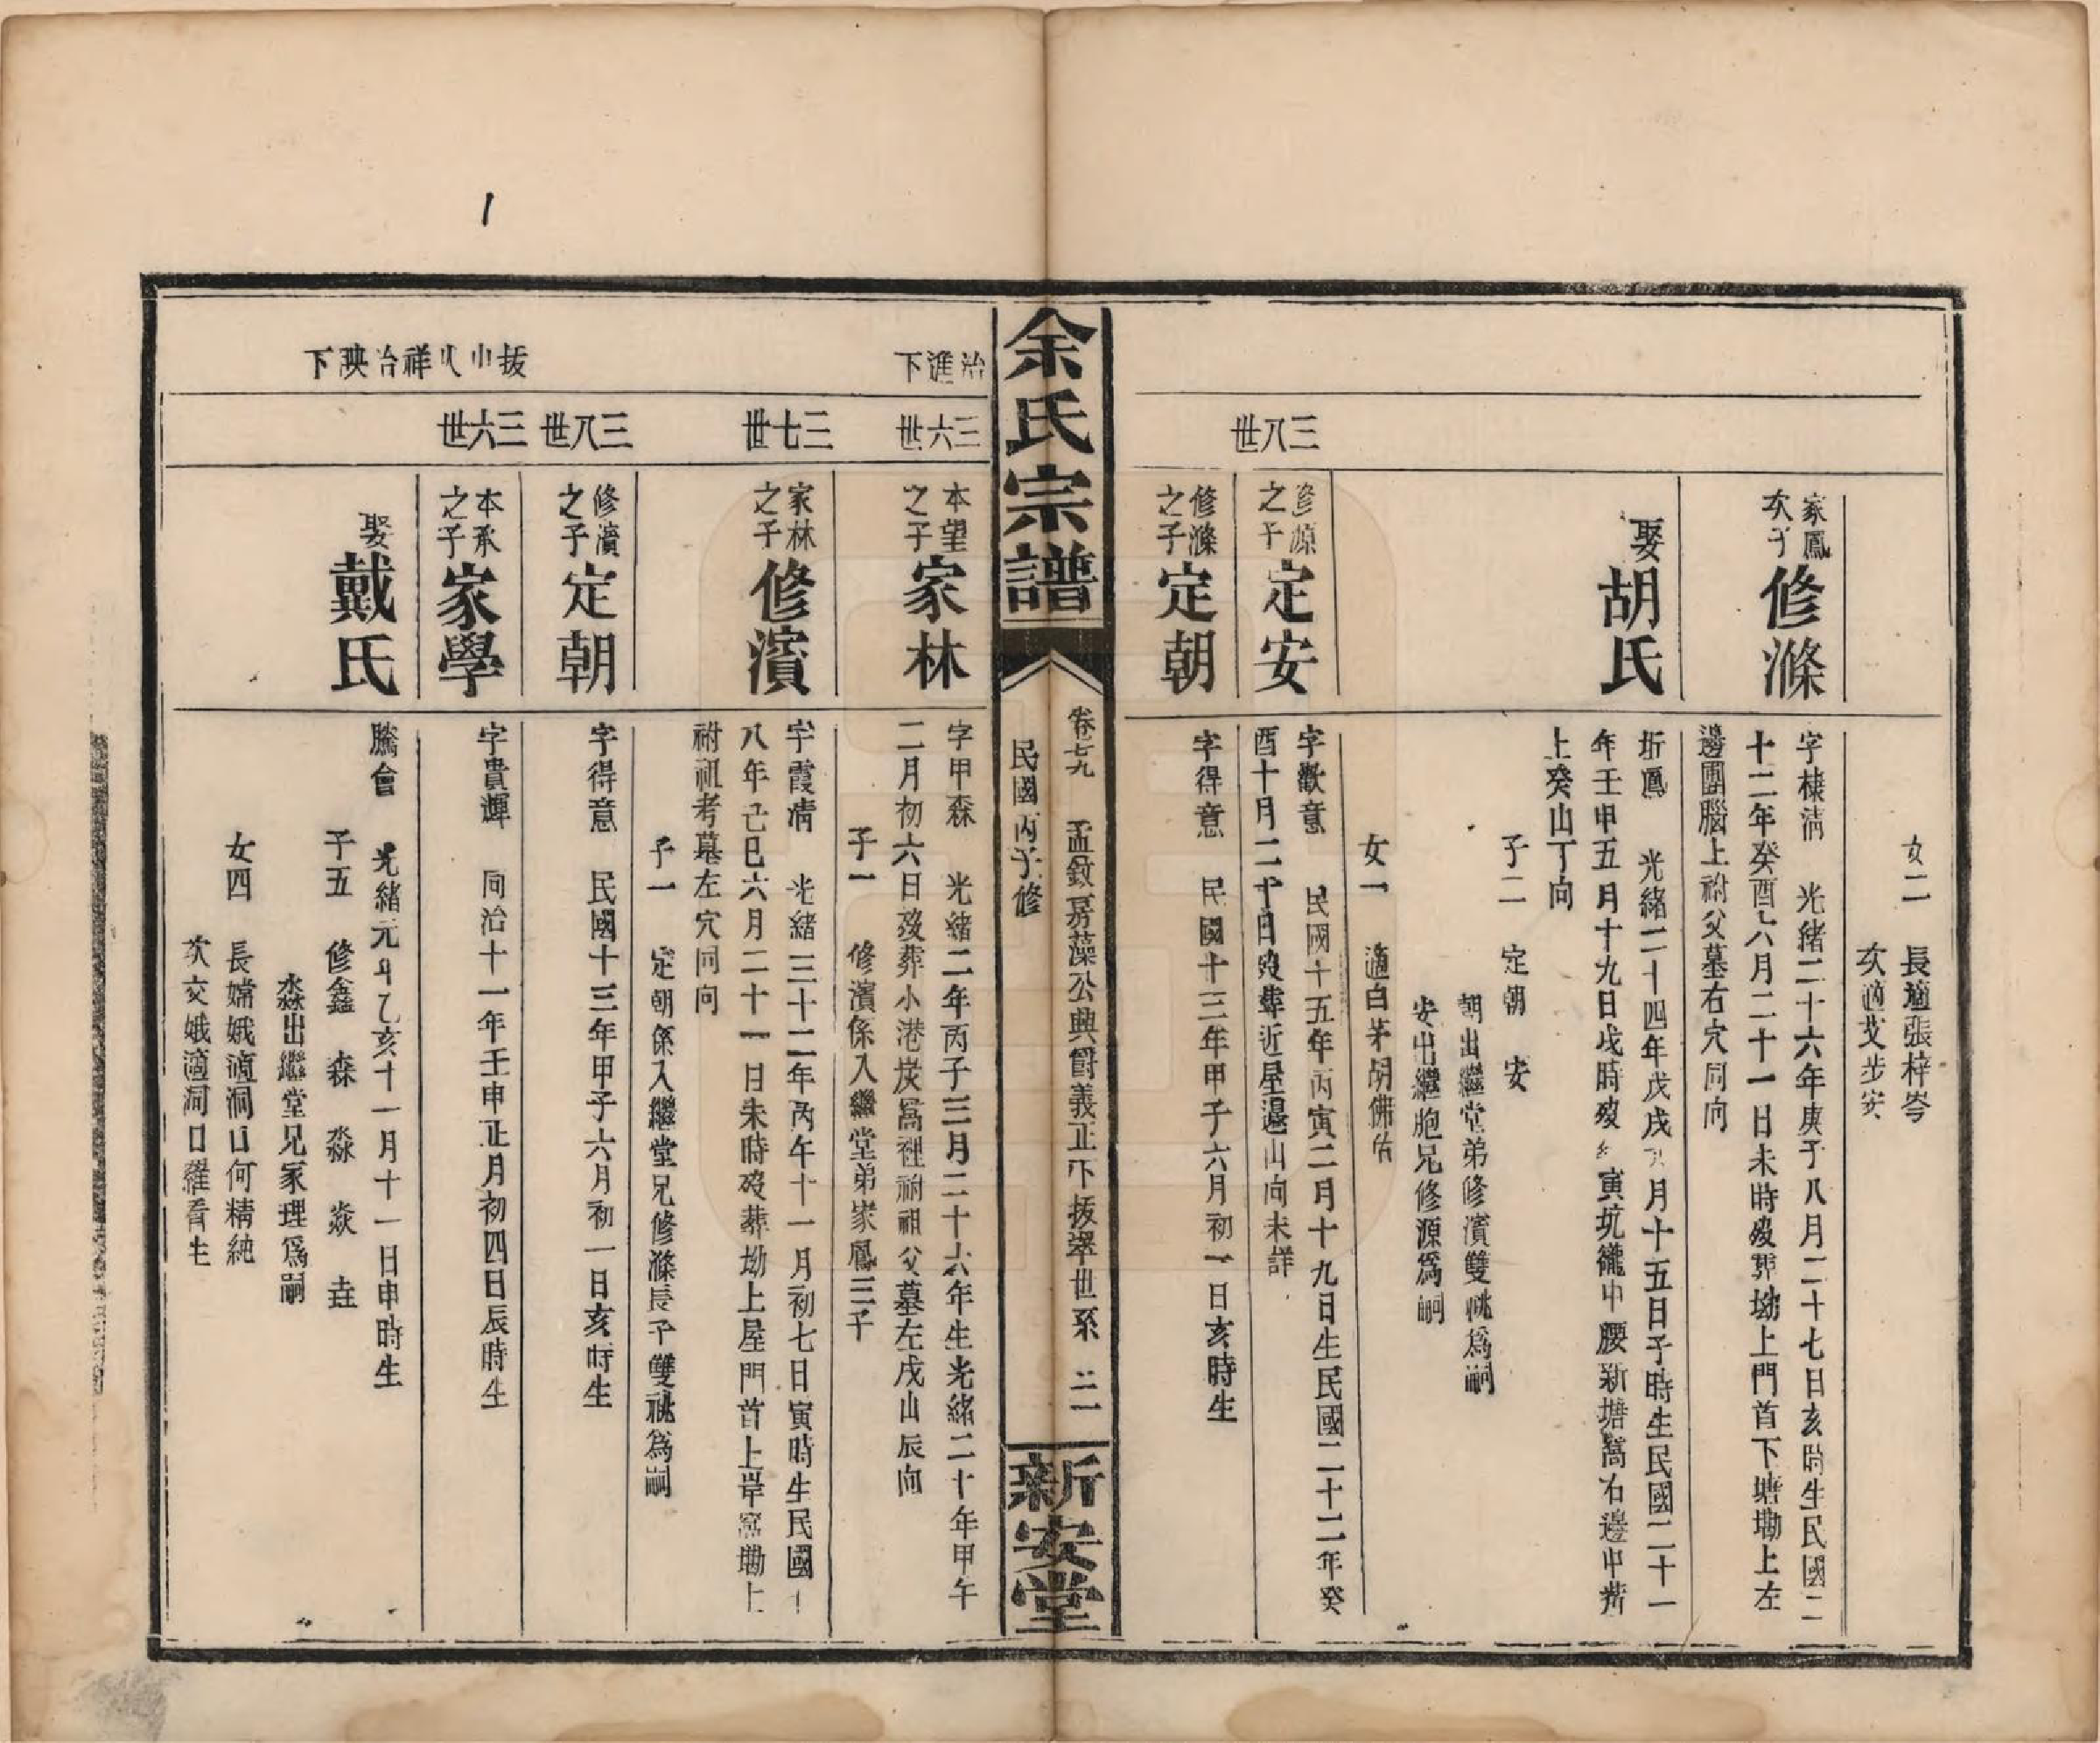 女二　長適張梓岑
次適艾步安
家鳳
次子
修滌
字棣清　光緒二十六年庚子八月二十七日亥時生民國二
十二年癸酉六月二十一日未時歿葬坳上門首下塘墈上左
邊團腦上祔父墓右穴同向
娶胡氏
圻鳳　光緒二十四年戊戌八月十五日子時生民國二十一
年壬申五月十九日戌時歿　寅坑壠中腰新塘窩右邊中
上癸山丁向
子二　定朝　安
朝出繼堂弟修濱雙祧爲嗣
安出繼胞兄修源爲嗣
女一　適白茅胡佛佑
三八世
修源
之子
定安
字歡意　民國十五年丙寅二月十九日生民國二十二年癸
酉十月二十日歿葬近屋邊山向未詳
修滌
之子
定朝
字得意　民國十三年甲子六月初一日亥時生
余氏宗譜
卷七九　孟敘房藻公典爵義正下拔翠世系　二一
民國丙子修
新安堂
治進下
三六世
本望
之子
家林
字甲森　光緒二年丙子三月二十六年生光緒二十年甲午
二月初六日歿葬小港炭窩裡祔祖父墓左戌山辰向
子一　修濱係入繼堂弟家鳳三子
三七世
家林
之子
修濱
字霞清　光緒三十二年丙午十一月初七日寅時生民國十
八年己巳六月二十一日未時歿葬坳上屋門首上岸窩墈上
祔祖考墓左穴同向
子一　定朝係入繼堂兄修滌長子雙祧爲嗣
三八世
修濱
之子
定朝
字得意　民國十三年甲子六月初一日亥時生
拔中八祥治映下
三六世
本承
之子
家學
字貴輝　同治十一年壬申正月初四日辰時生
娶戴氏
騰會　光緒元年乙亥十一月十一日申時生
子五　修鑫　森　淼　焱　垚
淼出繼堂兄家理爲嗣
女四　長嫦娥適洞口何精純
次交娥適洞口羅看生